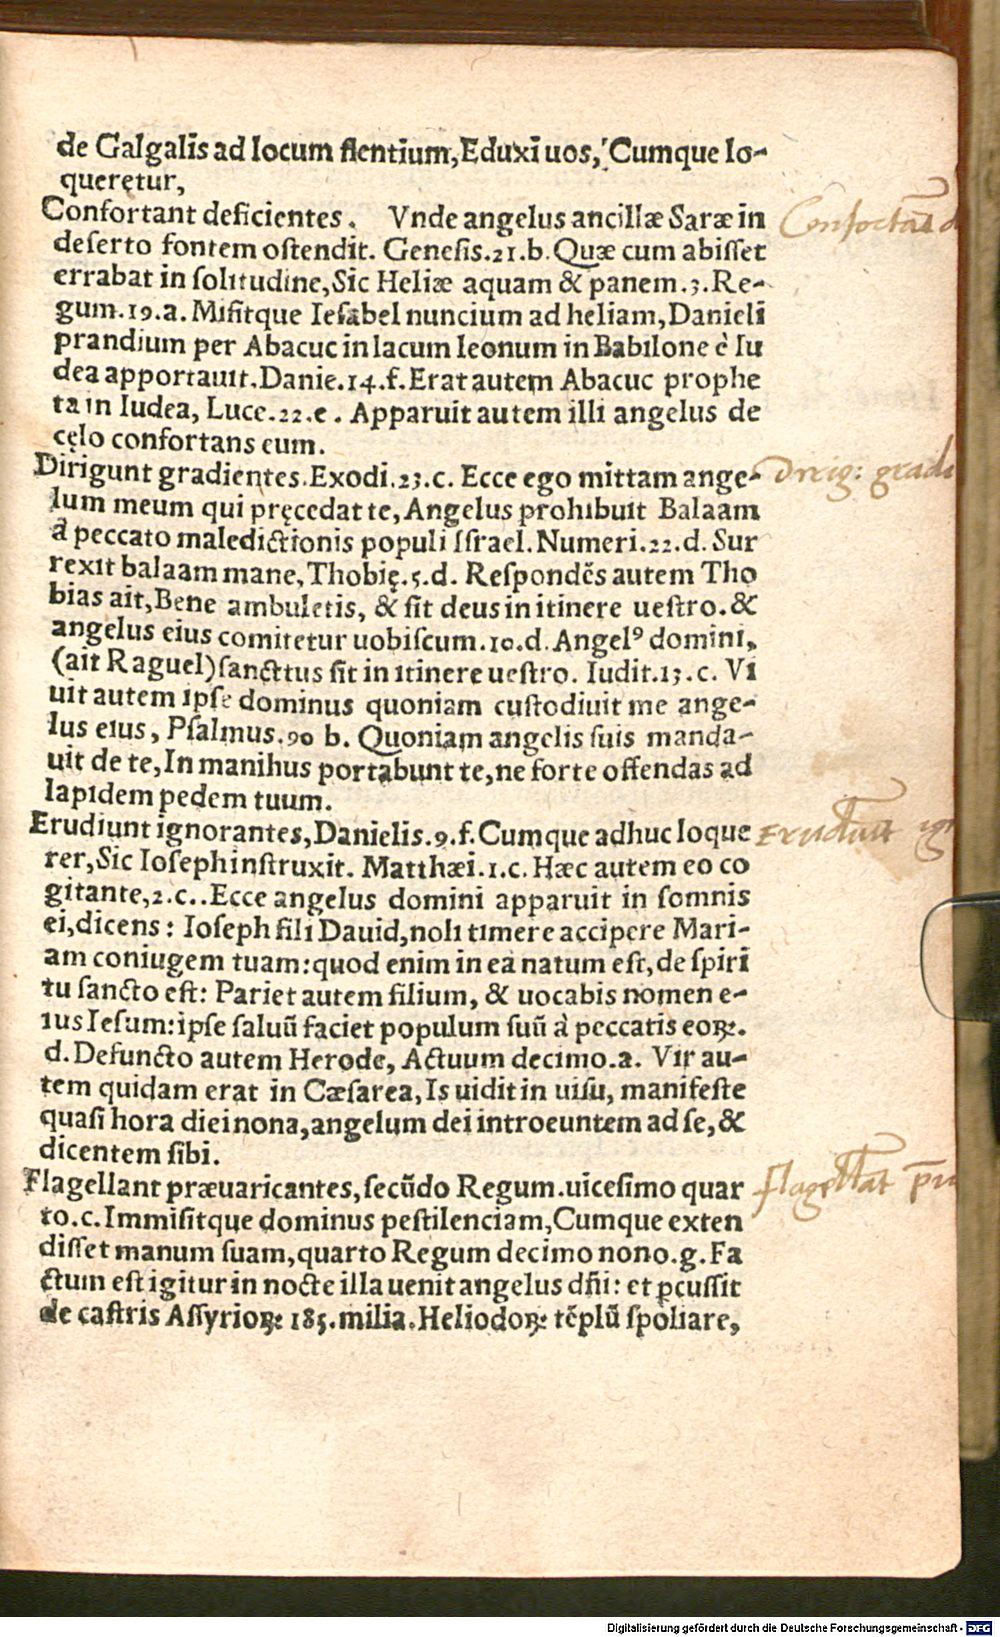 de Galgalis ad locum flentium, Eduxi uos, Cumque lo-
querętur,
Confortant deficientes. Vnde angelus ancillæ Saræ in
deſerto fontem oſtendit. Geneſis.21.b. Quæ cum abiſſet
errabat in ſolitudine, Sic Heliæ aquam & panem.3.Re-
gum.19.a. Miſitque Ieſabel nuncium ad heliam, Danieli
prandium per Abacuc in lacum leonum in Babilone è Iu
dea apportauit. Danie.14.f. Erat autem Abacuc prophe
ta in Iudea, Luce.22.e. Apparuit autem illi angelus de
cęlo confortans eum.
Dirigunt gradientes. Exodi.23.c. Ecce ego mittam ange-
lum meum qui pręcedat te, Angelus prohibuit Balaam
à peccato maledictionis populi Iſrael. Numeri.22.d. Sur
rexit balaam mane, Thobię.5.d. Reſpondẽs autem Tho
bias ait, Bene ambuletis, & ſit deus in itinere ueſtro. &
angelus eius comitetur uobiſcum.10.d. Angelꝰ domini,
(ait Raguel) ſancttus ſit in itinere ueſtro. Iudit.13.c. Vi
uit autem ipſe dominus quoniam cuſtodiuit me ange-
lus eius, Pſalmus.90 b. Quoniam angelis ſuis manda-
uit de te, In manihus portabunt te, ne forte offendas ad
lapidem pedem tuum.
Erudiunt ignorantes, Danielis.9.f. Cumque adhuc loque
rer, Sic Ioſeph inſtruxit. Matthæi.1.c. Hæc autem eo co
gitante,2.c.. Ecce angelus domini apparuit in ſomnis
ei, dicens: Ioſeph fili Dauid, noli timere accipere Mari-
am coniugem tuam: quod enim in ea natum eſt, de ſpiri
tu ſancto eſt: Pariet autem filium, & uocabis nomen e-
ius Ieſum: ipſe ſaluũ faciet populum ſuũ à peccatis eoꝝ.
d. Defuncto autem Herode, Actuum decimo.a. Vir au-
tem quidam erat in Cæſarea, Is uidit in uiſu, manifeſte
quaſi hora diei nona, angelum dei introeuntem ad ſe, &
dicentem ſibi.
Flagellant præuaricantes, ſecũdo Regum.uiceſimo quar
to.c. Immiſitque dominus peſtilenciam, Cumque exten
diſſet manum ſuam, quarto Regum decimo nono.g. Fa
ctum eſt igitur in nocte illa uenit angelus dñi: et ꝑcuſſit
de caſtris Aſſyrioꝝ 185.milia. Heliodoꝝ tẽplũ ſpoliare,
Confortãt d
Dirig: gradi
Erudiũt ig
flagellãt
Digitalisierung gefördert durch die Deutsche Forschungsgemeinschaft - DFG